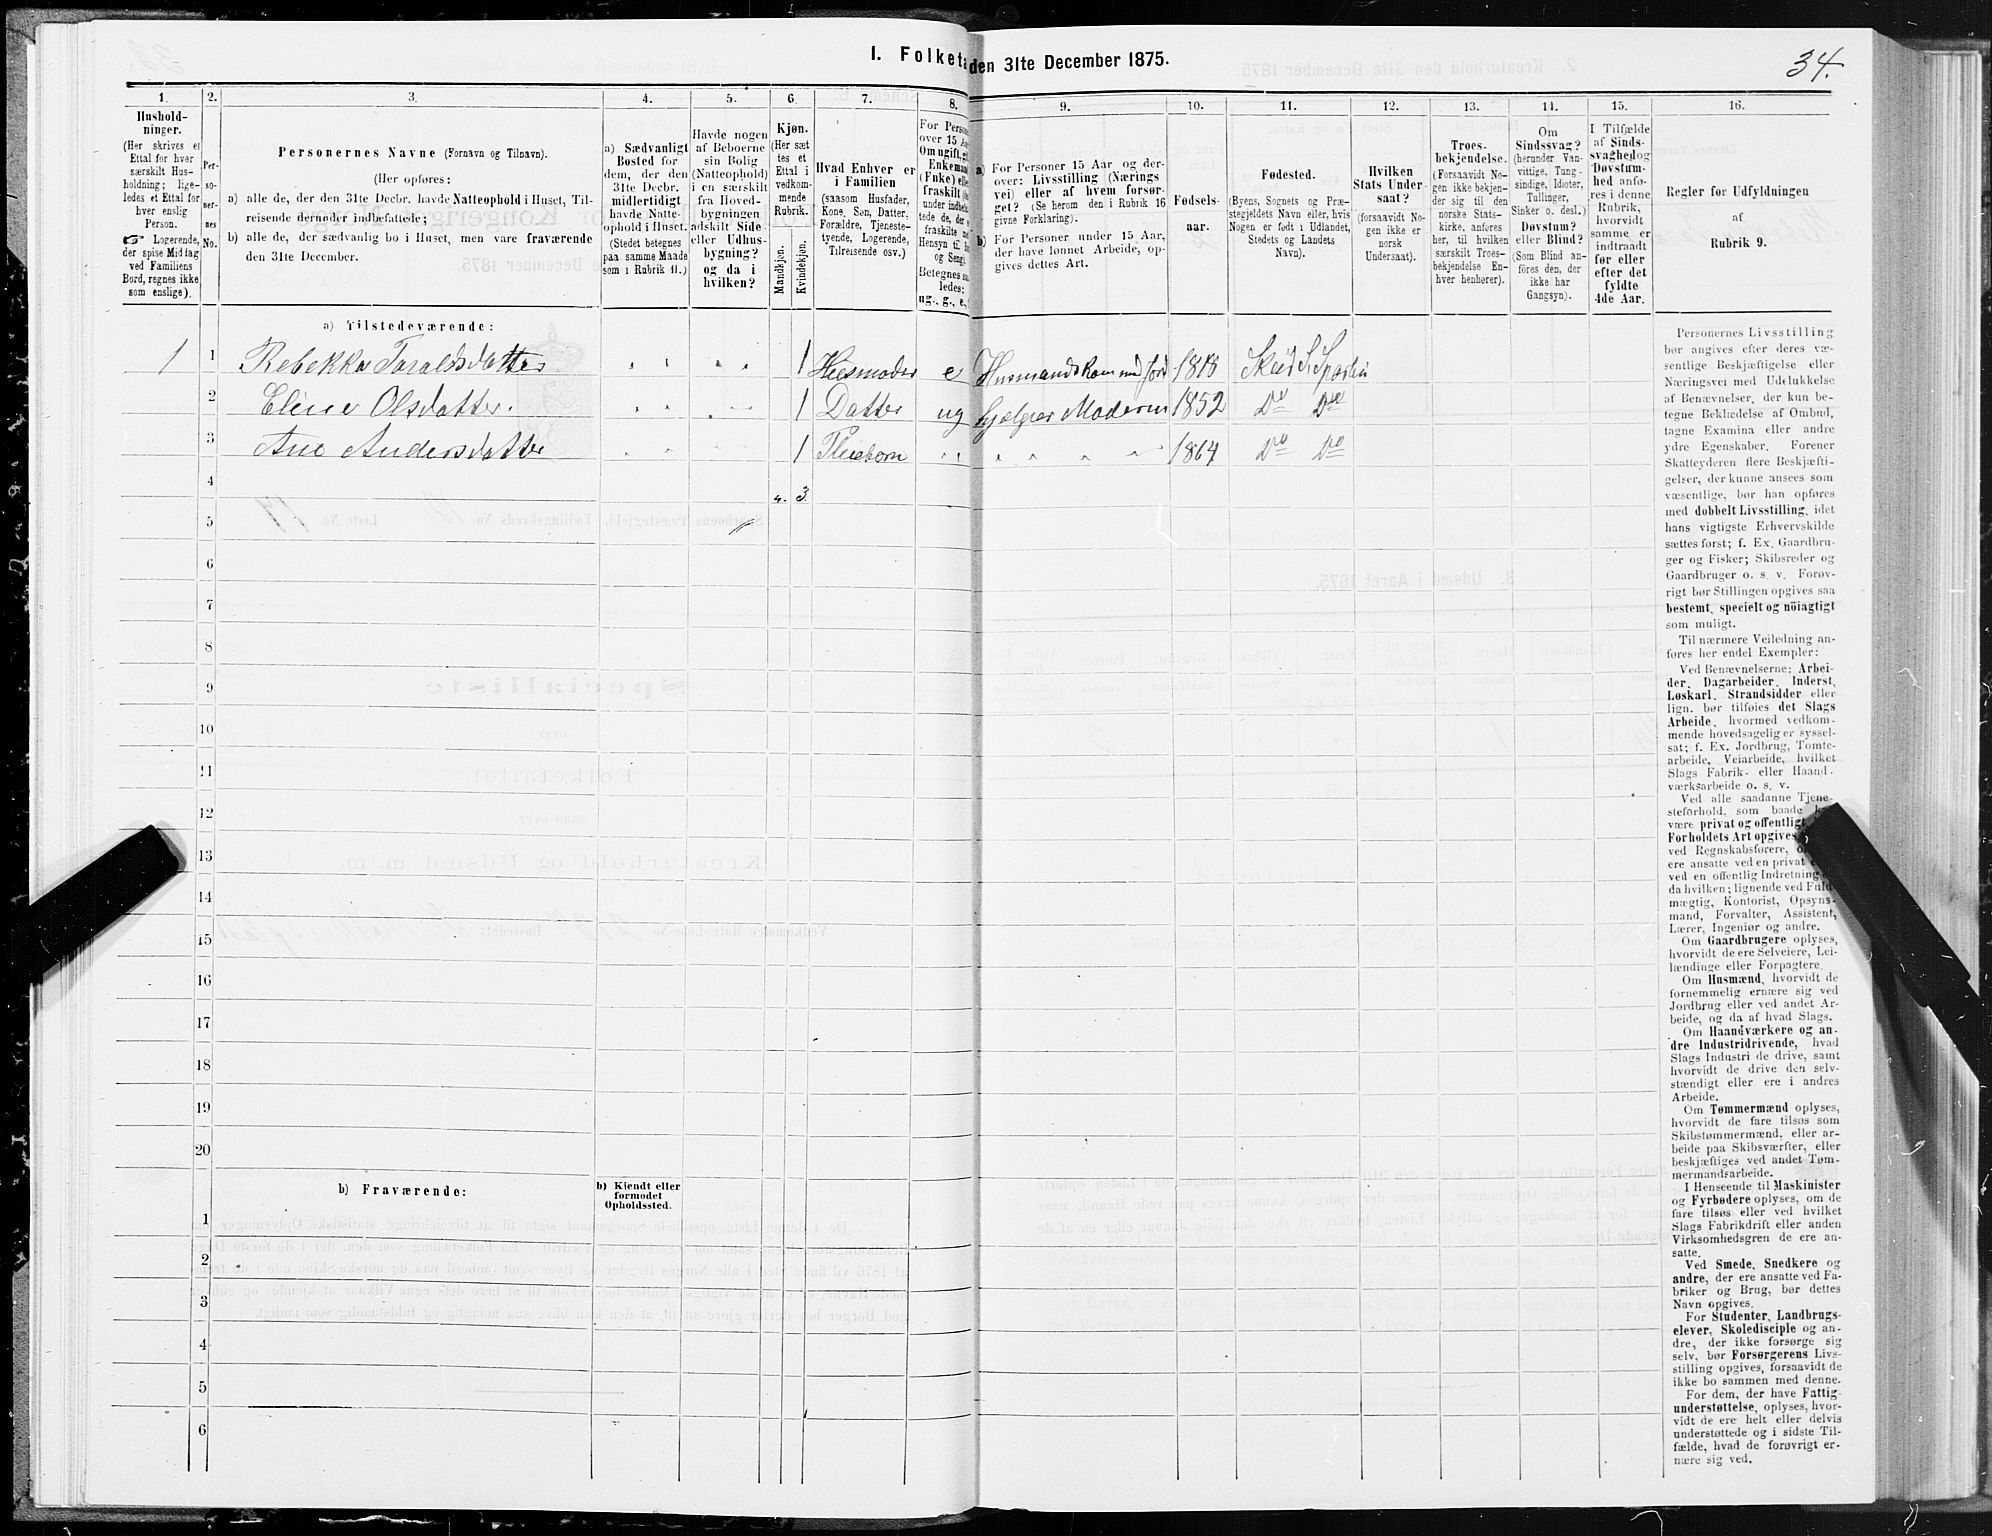 I. Folketæ den 31te December 1875.
34.
1. 2. 3. 4. 5. 6. 7. 8. 9. 10. 11. 12. 13. 14. 15. 16.
Hushold-
ninger.
(Her skrives et
Ettal for hver
særskilt Hus-
holdning; lige-
ledes et Ettal for
hver enslig
Person.
☞ Logerende,
der spise Middag
ved Familiens
Bord, regnes ikke
som enslige).
Per-
so-
ner-
nes
No.
Personernes Navne (Fornavn og Tilnavn).
(Her opføres:
a) alle de, der den 31te Decbr. havde Natteophold i Huset, Til-
reisende derunder indbefattede;
b) alle de, der sædvanlig bo i Huset, men vare fraværende
den 31te December.
a) Sædvanligt
Bosted for
dem, der den
31te Decbr.
midlertidigt
havde Natte-
ophold i Huset.
(Stedet betegnes
paa samme Maade
som i Rubrik 11.)
Havde nogen
af Beboerne
sin Bolig
(Natteophold)
i en særskilt
fra Hoved-
bygningen
adskilt Side-
eller Udhus-
bygning?
og da i
hvilken?
Kjøn.
(Her sæt
tes et
Ettal i
vedkom-
mende
Rubrik.
Mandkjøn.
Kvindekjøn.
Hvad Enhver er
i Familien
(saasom Husfader,
Kone, Søn, Datter,
Forældre, Tjeneste-
tyende, Logerende,
Tilreisende osv.)
For Persone
over 15 Aa
Om ugift, gi
Enkeman
(Enke) elle
fraskilt
under indbe
tede de, der
fraskilte
Hensyn til
og Seng)
Betegnes saa
ledes:
ug., g., e.,
a) For Personer 15 Aar og der-
over: Livsstilling (Nærings
vei) eller af hvem forsør-
get? (Se herom den i Rubrik 16
givne Forklaring).
b) For Personer under 15 Aar,
der have lønnet Arbeide, op-
gives dettes Art.
Fødsels-
aar.
Fødested.
(Byens, Sognets og Præ-
stegjeldets Navn eller, hvis
Nogen er født i Udlandet,
Stedets og Landets
Navn).
Hvilken
Stats Under-
saat?
(forsaavidt No-
gen ikke er
norsk
Undersaat).
Troes-
bekjendelse.
(Forsaavidt No-
gen ikke bekjen-
der sig til den
norske Stats-
kirke, anføres
her, til hvilken
særskilt Troes-
bekjendelse En-
hver henhører).
Om
Sindssvag?
(herunder Van-
vittige, Tung-
sindige, Idioter,
Tullinger,
Sinker o. desl.)
Døvstum?
eller Blind?
(Som Blind an-
føres den, der
ikke har
Gangsyn).
I Tilfælde
af Sinds-
svaghed og
Døvstum-
hed anfø-
res i denne
Rubrik,
hvorvidt
samme er
indtraadt
før eller
efter det
fyldte
4de Aar.
Regler for Udfyldningen
af
Rubrik 9.
a) Tilstedeværende:
1 1 Rebekka Taraldsdatter " " " " 1 Huusmoder e Husmandskom med Jord 1818 Skeid S Sparbu
2 Eline Olsdatter. " " " 1 Datter ug hjelper Moderen 1852 Do Do
3 Ane Andersdatter " " " 1 Pleiebarn " " " " " " 1864 Do Do
4 " 3
5
6
7
8
9
10
11
12
13
14
15
16
17
18
19
20
b) Fraværende:
b) Kjendt eller
formodet
Opholdssted.
1
2
3
4
5
6
Personernes Livsstilling
bør angives efter deres væ-
sentlige Beskjæftigelse eller
Næringsvei med Udelukkelse
af Benævnelser, der kun be-
tegne Beklædelse af Ombud,
tagne Examina eller andre
ydre Egenskaber. Forener
Skatteyderen flere Beskjæfti-
gelser, der kunne ansees som
væsentlige, bør han opføres
med dobbelt Livsstilling, idet
hans vigtigste Erhvervskilde
sættes først; f. Ex. Gaardbru-
ger og Fisker; Skibsreder og
Gaardbruger o. s. v. Forøv-
rigt bør Stillingen opgives saa
bestemt, specielt og nöiagtigt
som muligt.
Til nærmere Veiledning an-
føres her endel Exempler:
Ved Benævnelserne: Arbei-
der, Dagarbeider, Inderst,
Løskarl, Strandsidder eller
lign. bør tilføies det Slags
Arbeide, hvormed vedkom-
mende hovedsagelig er syssel-
sat; f. Ex. Jordbrug, Tomte-
arbeide, Veiarbeide, hvilket
Slags Fabrik- eller Haand-
værksarbeide o. s. v.
Ved alle saadanne Tjene-
steforhold, som baade k
være privat og offentligt,
Forholdets Art opgives
ved Regnskabsførere,
ere ansatte ved en privat
ved en offentlig Indretning
da hvilken; lignende ved Fuld-
mægtig, Kontorist, Opsyns-
mand, Forvalter, Assistent,
Lærer, Ingeniør og andre.
Om Gaardbrugere oplyses,
hvorvidt de ere Selveiere, Lei-
lændinge eller Forpagtere.
Om Husmænd, hvorvidt de
fornemmelig ernære sig ved
Jordbrug eller ved andet Ar-
beide, og da af hvad Slags.
Om Haandværkere og an-
dre Industridrivende, hvad
Slags Industri de drive, samt
hvorvidt de drive den selv-
stændigt eller ere i andres
Arbeide.
Om Tømmermænd oplyses,
hvorvidt de fare tilsøs som
Skibstømmermænd, eller ar-
beide paa Skibsværfter, eller
beskjæftiges ved andet Tøm-
mermandsarbeide.
I Henseende til Maskinister
og Fyrbødere oplyses, om de
fare tilsøs eller ved hvilket
Slags Fabrikdrift eller anden
Virksomhedsgren de ere an-
satte.
Ved Smede, Snedkere og
andre, der ere ansatte ved Fa-
briker og Brug, bør dettes
Navn opgives.
For Studenter, Landbrugs-
elever, Skoledisciple og an-
dre, der ikke forsørge sig
selv, bør Forsørgerens Livs-
stilling opgives, forsaavidt de
ikke bo sammen med denne.
For dem, der have Fattig-
understøttelse, oplyses, hvor-
vidt de ere helt eller delvis
understøttede og i sidste Til-
fælde, hvad de forøvrigt er-
nære sig ved.